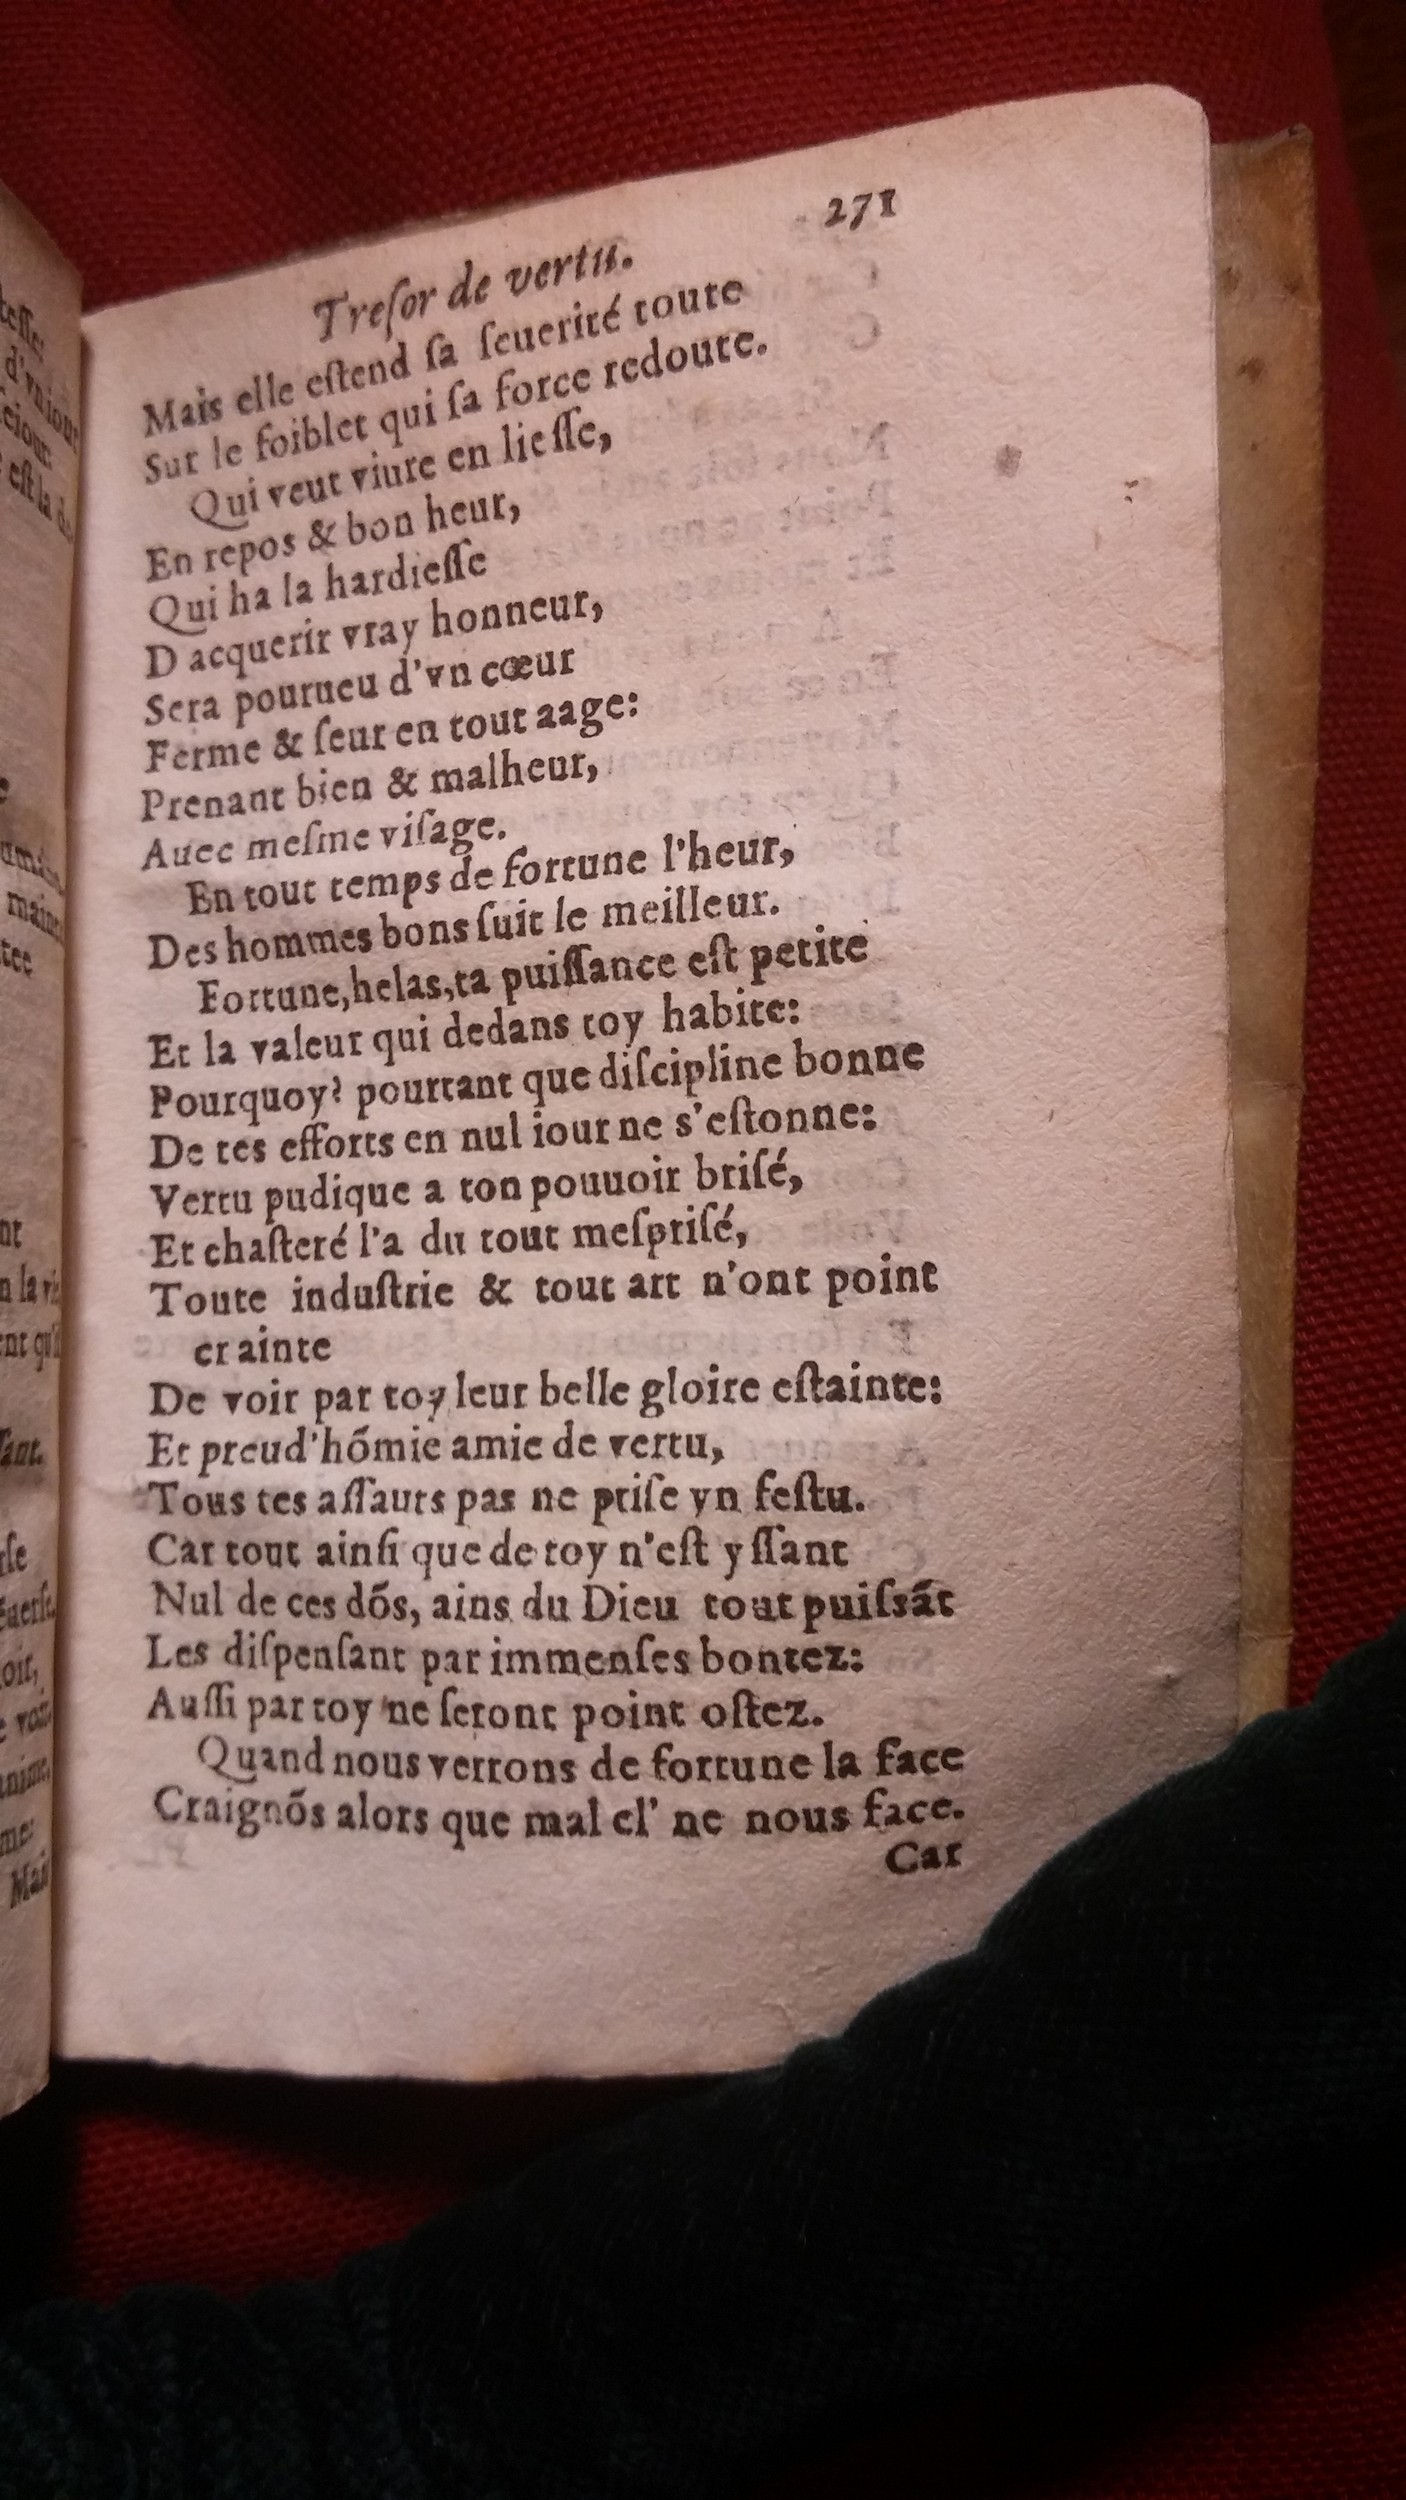 teſſe:
d'vn iour
ſeiour:
eſt la
maint
tee
nt
n la vie
ent qu'il
ſant.
rſe
oit,
voit
me:
Mais
271
Treſor de vertu.
Mais elle eſtend ſa ſeuerité toute
Sur le foiblet qui ſa force redoute.
Qui veut viure en lieſſe,
En repos & bon heur,
Qui ha la hardieſſe
D acquerir vray honneur,
Sera pourueu d'vn cœur
Ferme & ſeur en tout aage:
Prenant bien & malheur,
Auec meſme viſage.
En tout temps de fortune l'heur,
Des hommes bons ſuit le meilleur.
Fortune, helas, ta puiſſance eſt petite
Et la valeur qui dedans toy habite:
Pourquoy? pourtant que diſcipline bonne
De tes efforts en nul iour ne s'eſtonne:
Vertu pudique a ton pouuoir briſé,
Et chaſteté l'a du tout meſpriſé,
Toute induſtrie & tout art n'ont point
crainte
De voir par toy leur belle gloire eſtainte:
Et preud'hõmie amie de vertu,
Tous tes aſſauts pas ne priſe vn feſtu.
Car tout ainſi que de toy n'eſt yſſant
Nul de ces dõs, ains du Dieu tout puiſsãt
Les diſpenſant par immenſes bontez:
Auſſi par toy ne ſeront point oſtez.
Quand nous verrons de fortune la face
Craignõs alors que mal el' ne nous face.
Car